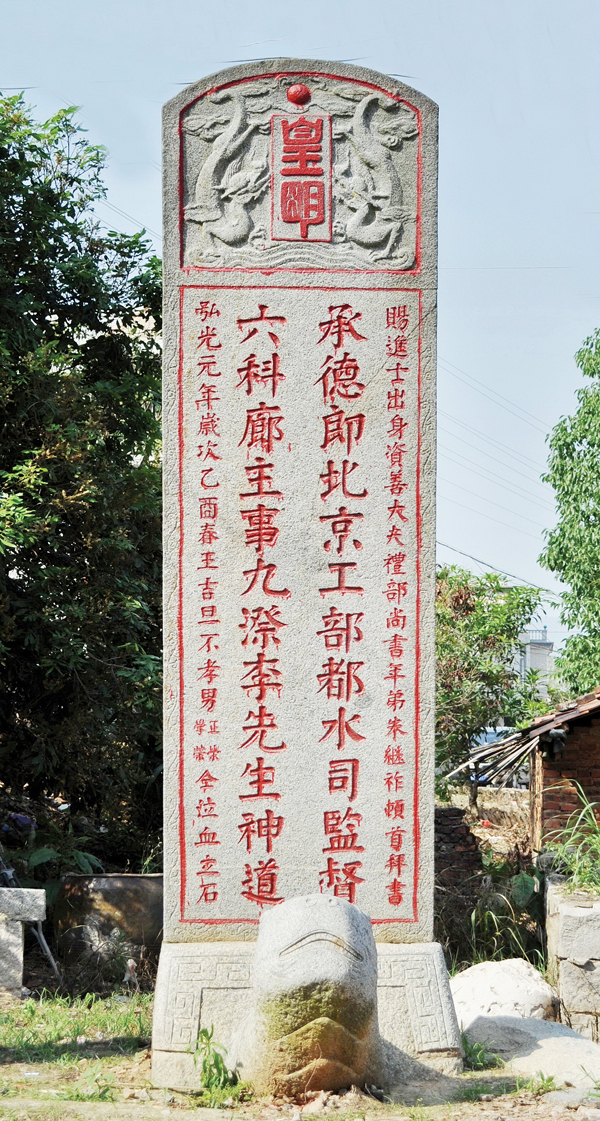 皇明
賜進士出身資善大夫禮部尚書年弟朱繼祚頓首拜書
承德郎北京工部都水司監督
六科廊主事九漈李先生神道
弘光元年歲次乙酉春王吉旦不孝男
正榮
學榮
仝泣血立石